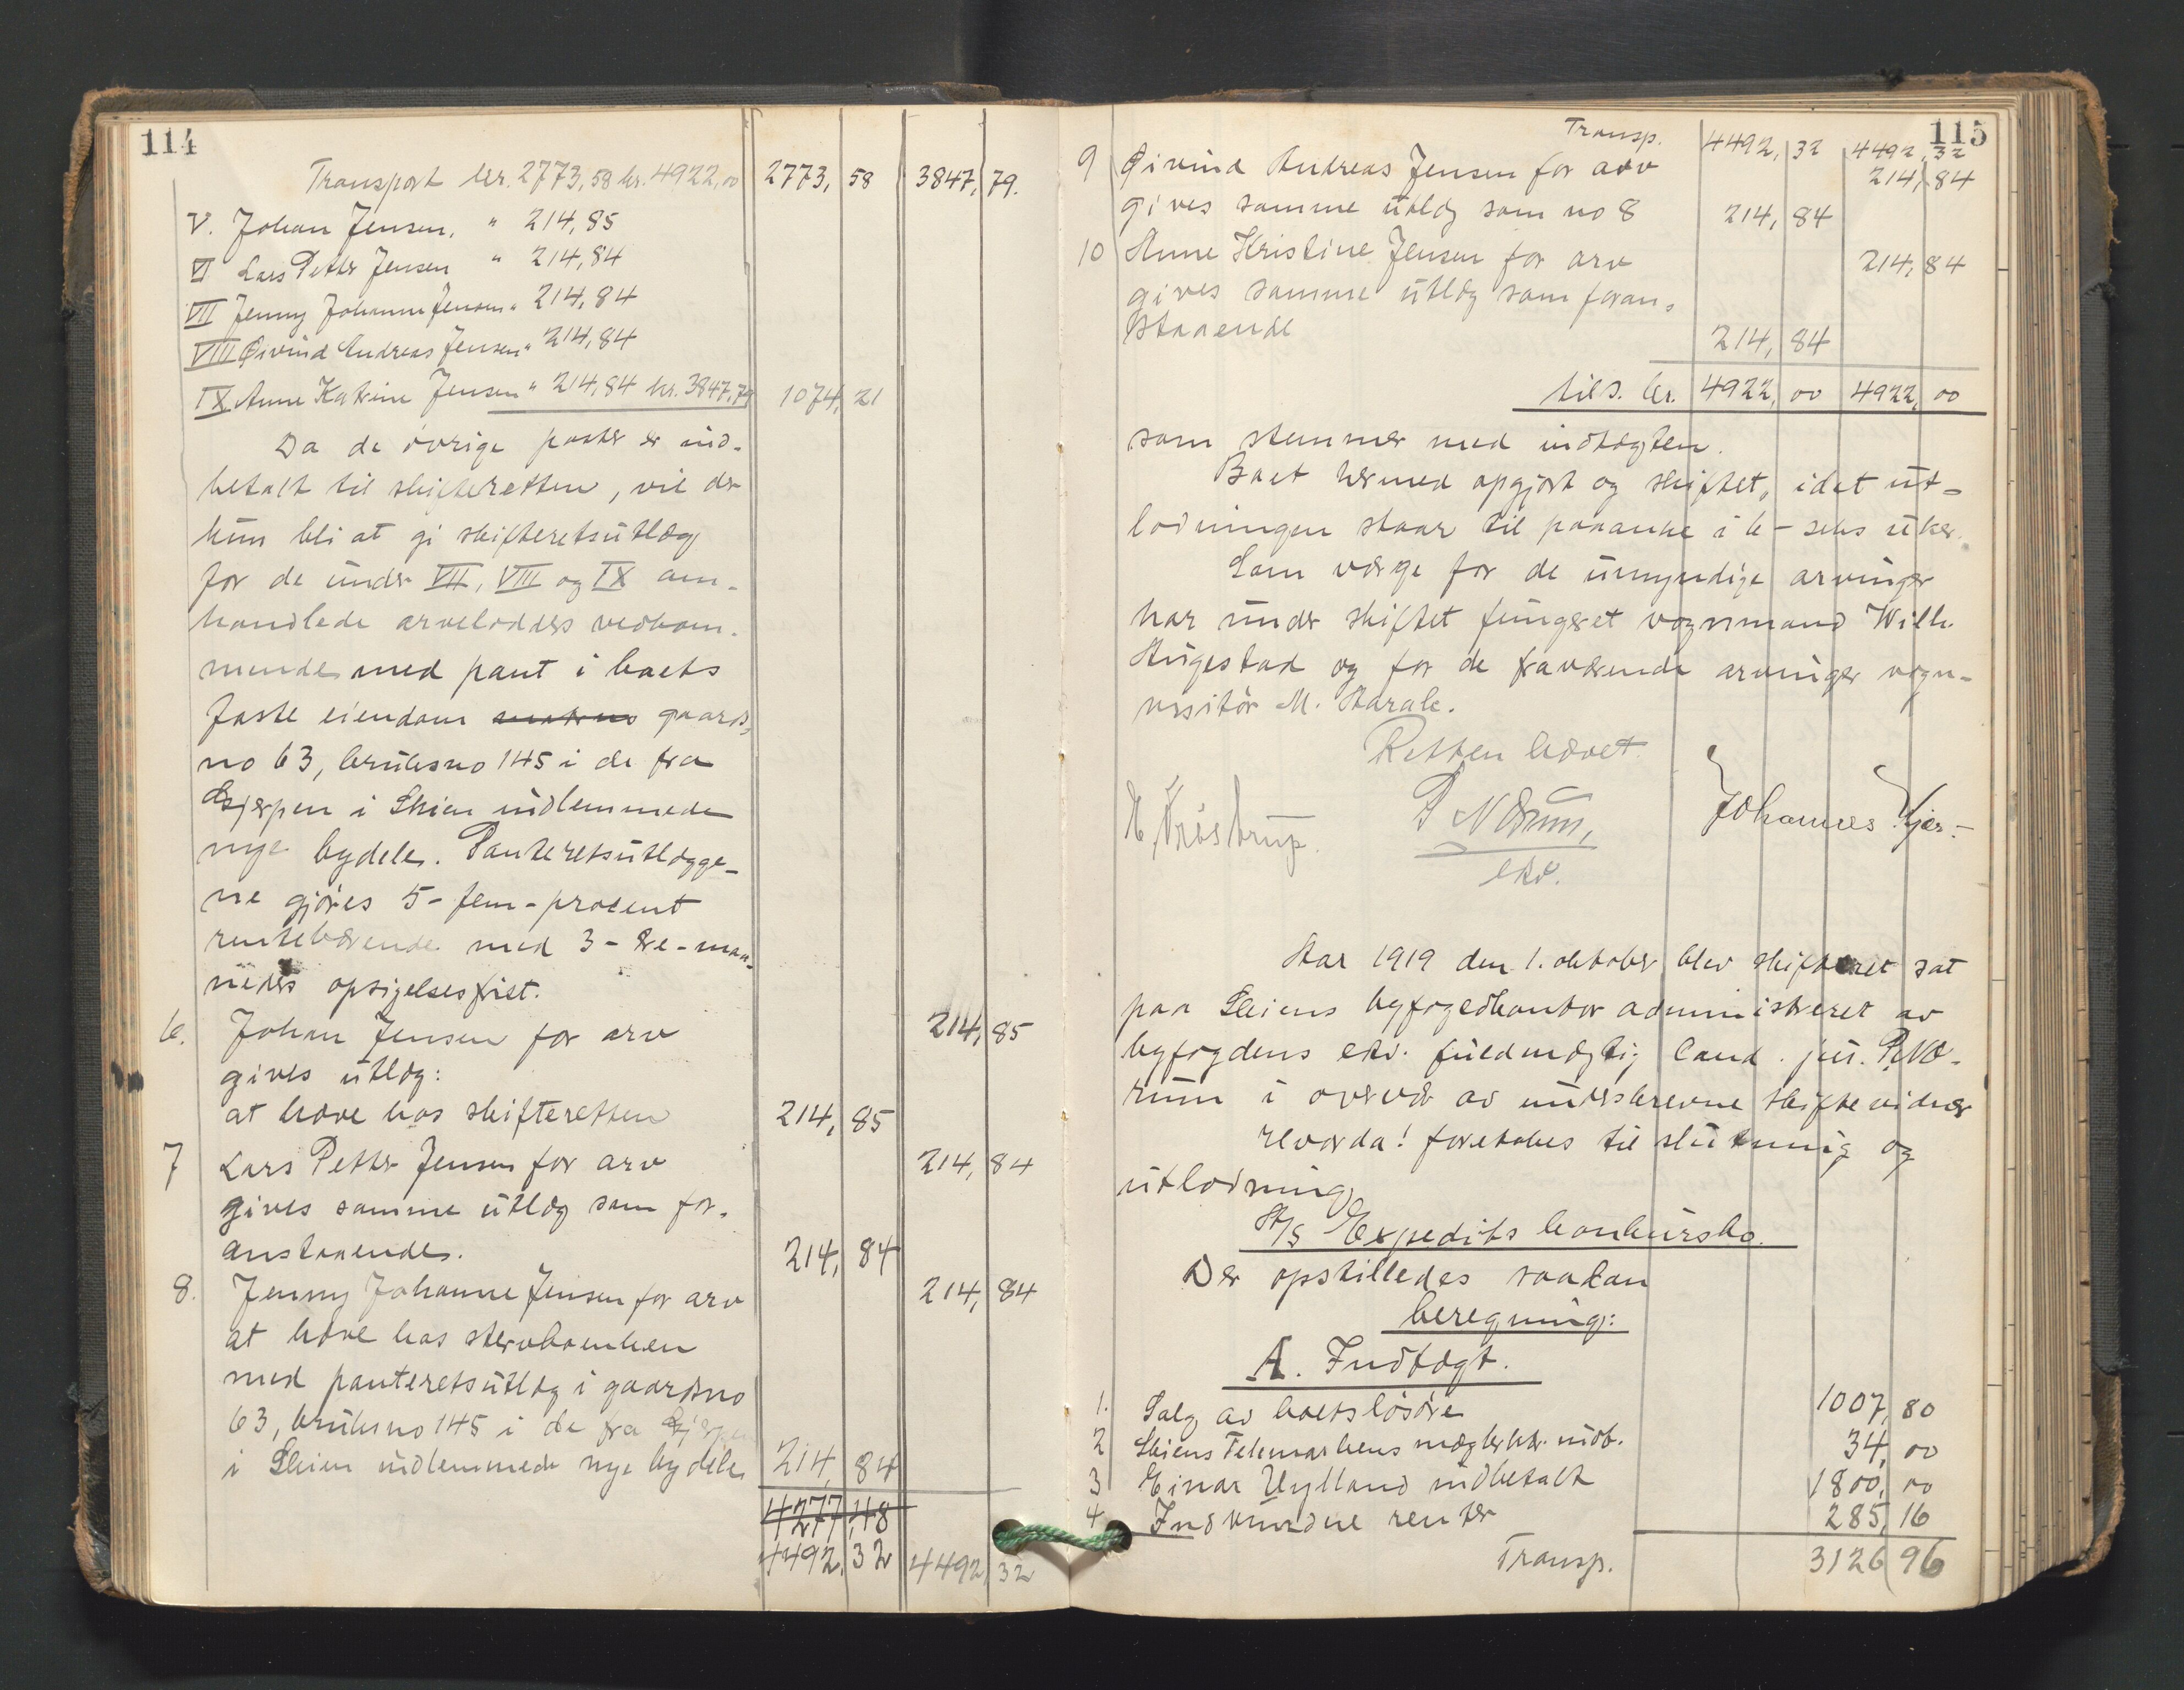 114
Transport kr. 2773,58 kr. 4922,00 2773, 58 3847, 79.
V. Johan Jensen, " 214,85
VI Lars Petter Jensen " 214,84
VII Jenny Johanne Jensen " 214,84
VIII Øivind Andreas Jensen " 214,84
IX Anne Katrine Jensen " 214,84 kr. 3847,79 1074, 21
Da de øvrige poster er ind-
betalt til skifteretten, vil der
kun bli at gi skifteretsutlæg
for de under VII, VIII og IX om-
handlede arvelodders vedkom-
mende med pant i boets
faste eiendom gaards-
no 63, bruksno 145 i de fra
Gjerpen i Skien indlemmede
nye bydele. Panteretsutlægge-
ne gjøres 5 - fem - procent
rentebærende med 3 - tre - maa-
neders opsigelsesfrist.
6. Johan Jensen for arv 214, 85
gives utlæg:
at hæve hos skifteretten 214, 85
7 Lars Petter Jensen for arv 214, 84
gives samme utlæg som for-
anstaaende. 214, 84
8. Jenny Johanne Jensen for arv 214, 84
at hæve hos stervboenken
med panteretsutlæg i gaardsno
63, bruksno 145 i de fra Gjerpen
i Skien indlemmede nye bydele 214, 84
4277, 48
4492, 32 4492, 32
115
Transp. 4492, 32 4492, 32
9 Øivind Andreas Jensen for arv 214, 84
gives samme utlæg som no 8 214, 84
10 Anne Kristine Jensen for arv 214, 84
gives samme utlæg som foran-
staaende 214, 84
tils. kr. 4922, 00 4922, 00
som stemmer med indtægten.
Boet hermed opgjort og skiftet, idet ut-
lodningen staar til paaanke i 6 - seks uker.
Som værge for de umyndige arvinger
har under skiftet fungeret vognmand Wilh.
Stugestad og for de fraværende arvinger vogn-
visitør M. Harale.
Retten hævet.
P Nærum,
cst.
Johannes Kjær.-
Aar 1919 den 1. oktober blev skifteret sat
paa Skiens byfogedkontor administreret av
byfogdens edsv. fuldmægtig cand. jur. P. Næ-
rum i overvær av underskrevne skiftevidner
Hvorda! foretokes til slutning og
utlodning
A/S Expedits konkursbo.
Der opstilledes saadan
beregning:
A. Indtægt.
1. Salg av boets løsøre 1007, 80
2 Skiens Telemarkens mæglerktr. indb. 34, 00
3 Einar Nylland indbetalt 1800, 00
4 Indvundne renter 285, 16
Transp. 3126 96